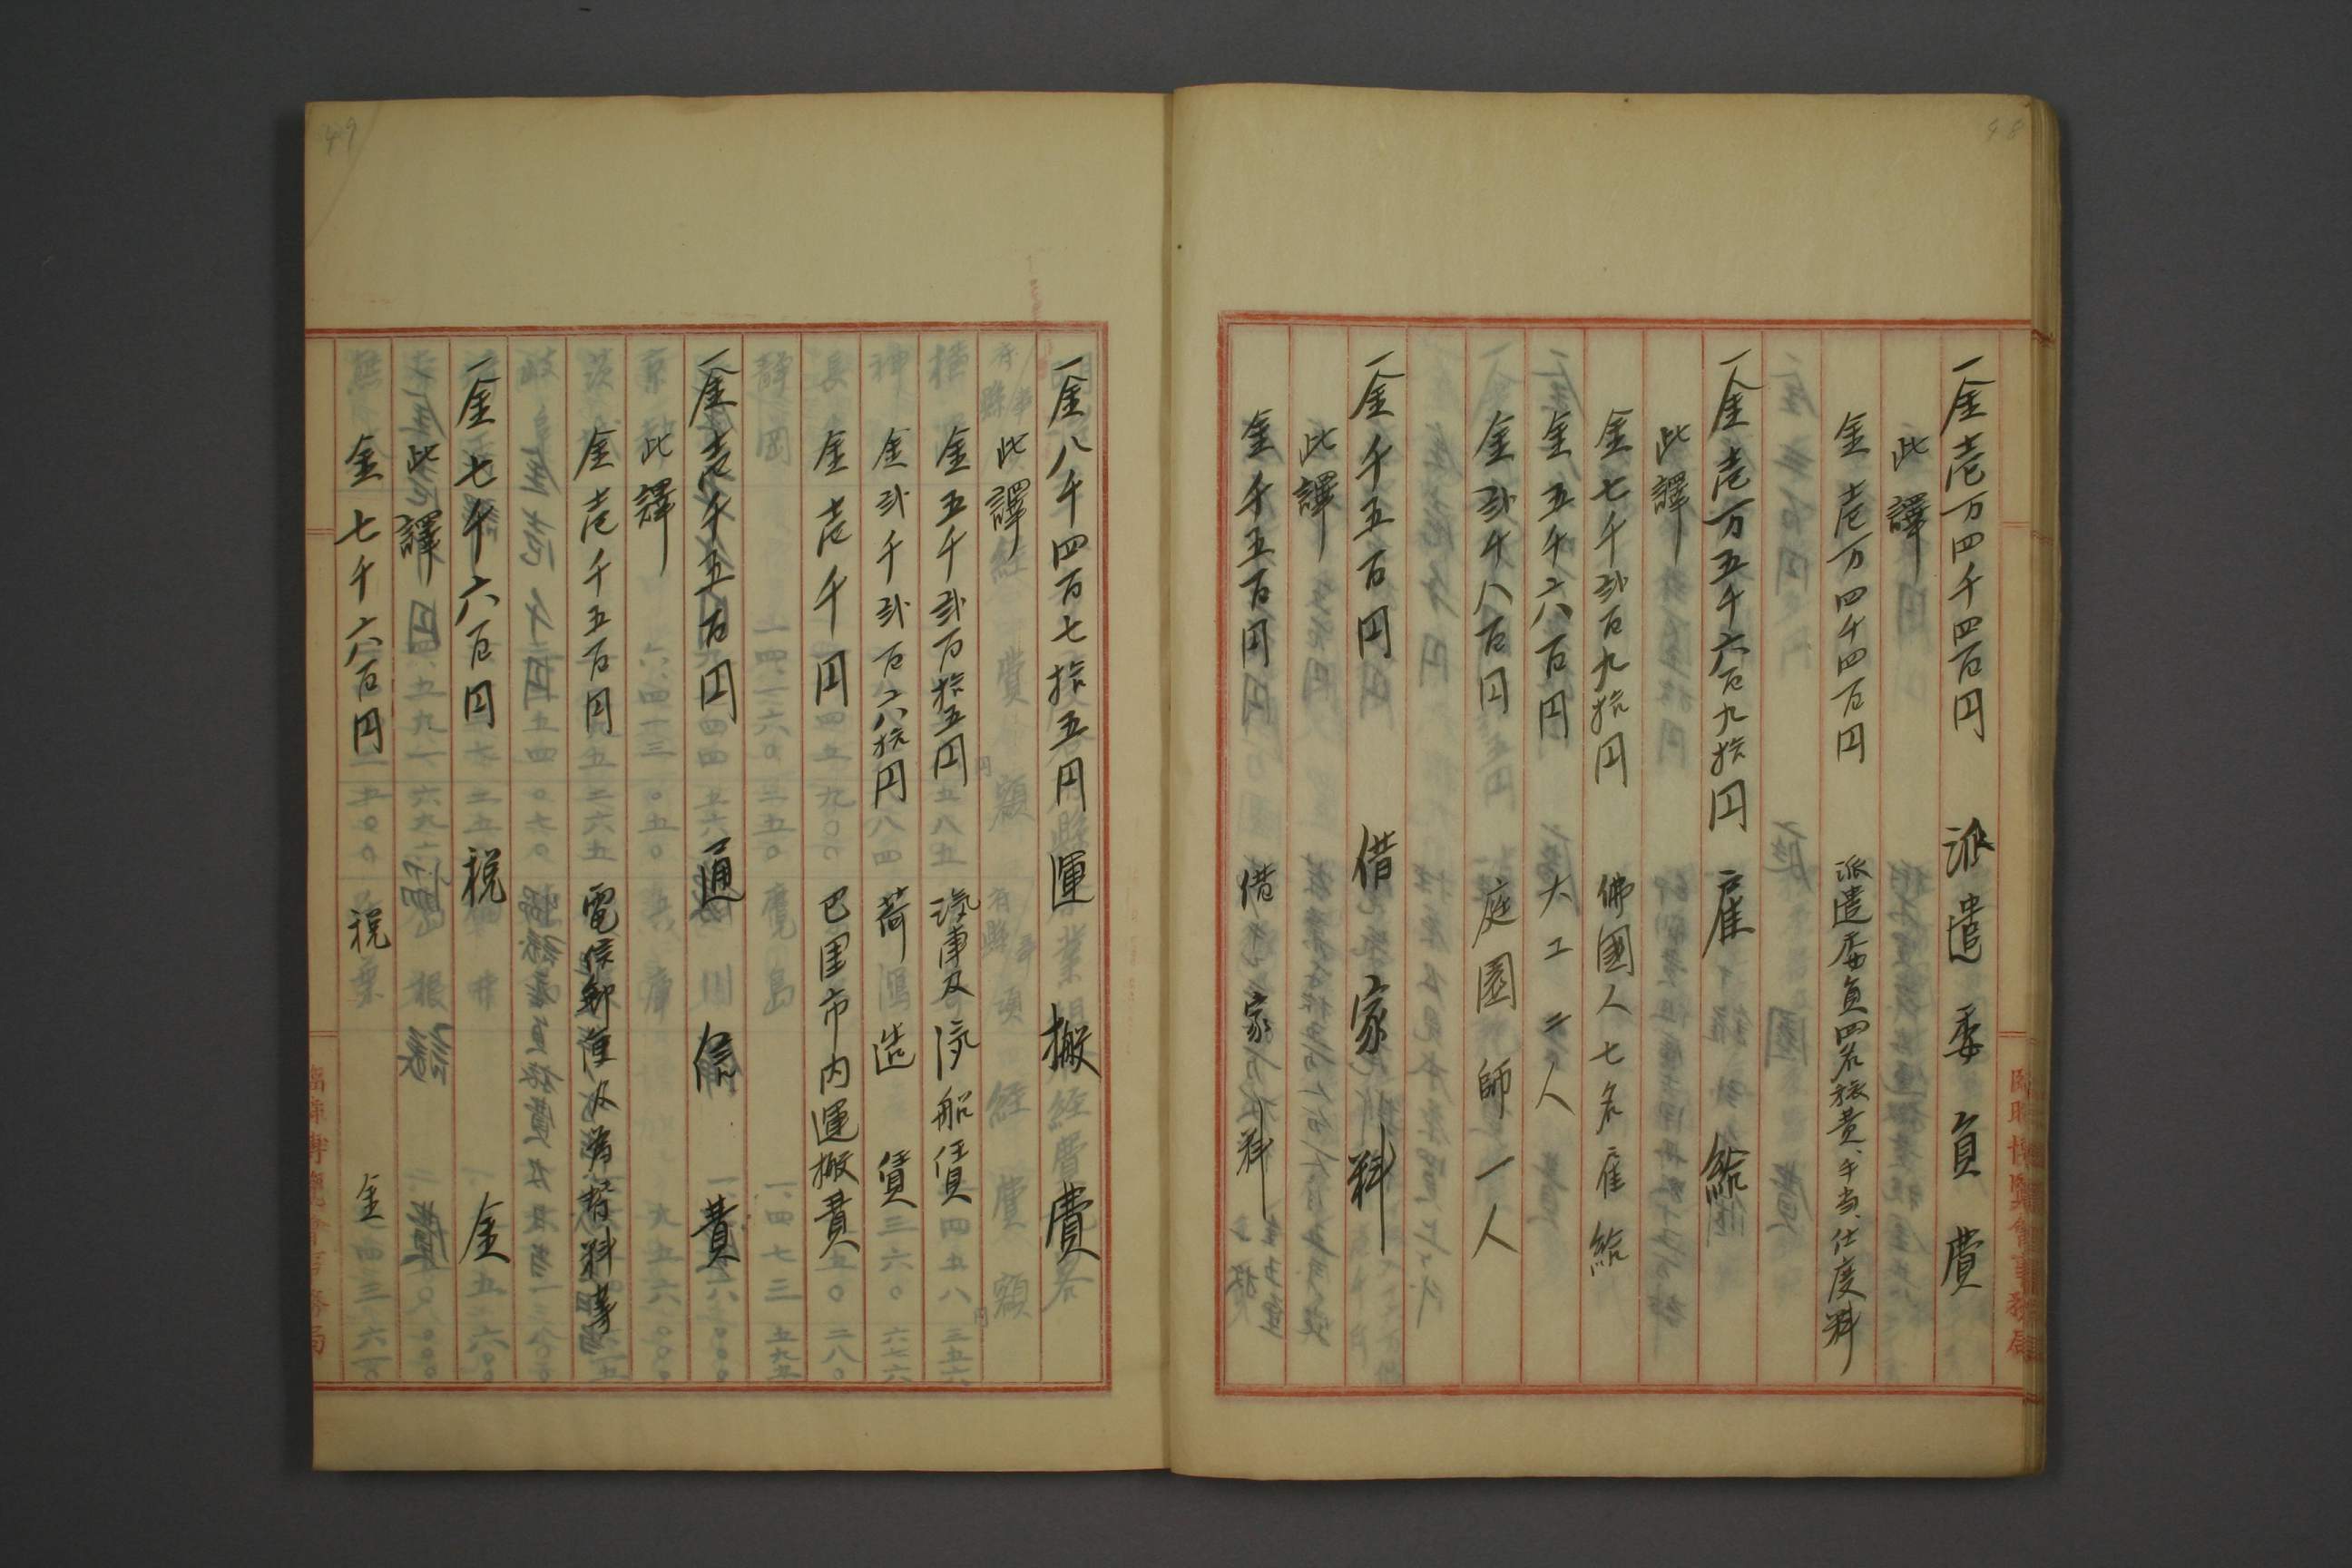 48
一金壱万四千四百円 派遣委員費
此譯
金壱万四千四百円 派遣委員四名旅費、手当、仕度料
一金壱万五千六百九拾円 雇給
此譯
金七千弐百九拾円 佛國人七名雇給
金五千六百円 大工二人
金弐千八百円 庭園師一人
一金千五百円 借家料
此譯
金千五百円 借家料
臨時博覧會事務局
49
一金八千四百七拾五円 運搬費
此譯
金五千弐百拾五円 汽車及汽船賃
金弐千弐百六拾円 荷造賃
金壱千円 巴里市内運搬費
一金壱千五百円 通信費
此譯
金壱千五百円 電信郵便及為替料等
一金七千六百円 税金
此譯
金七千六百円 税金